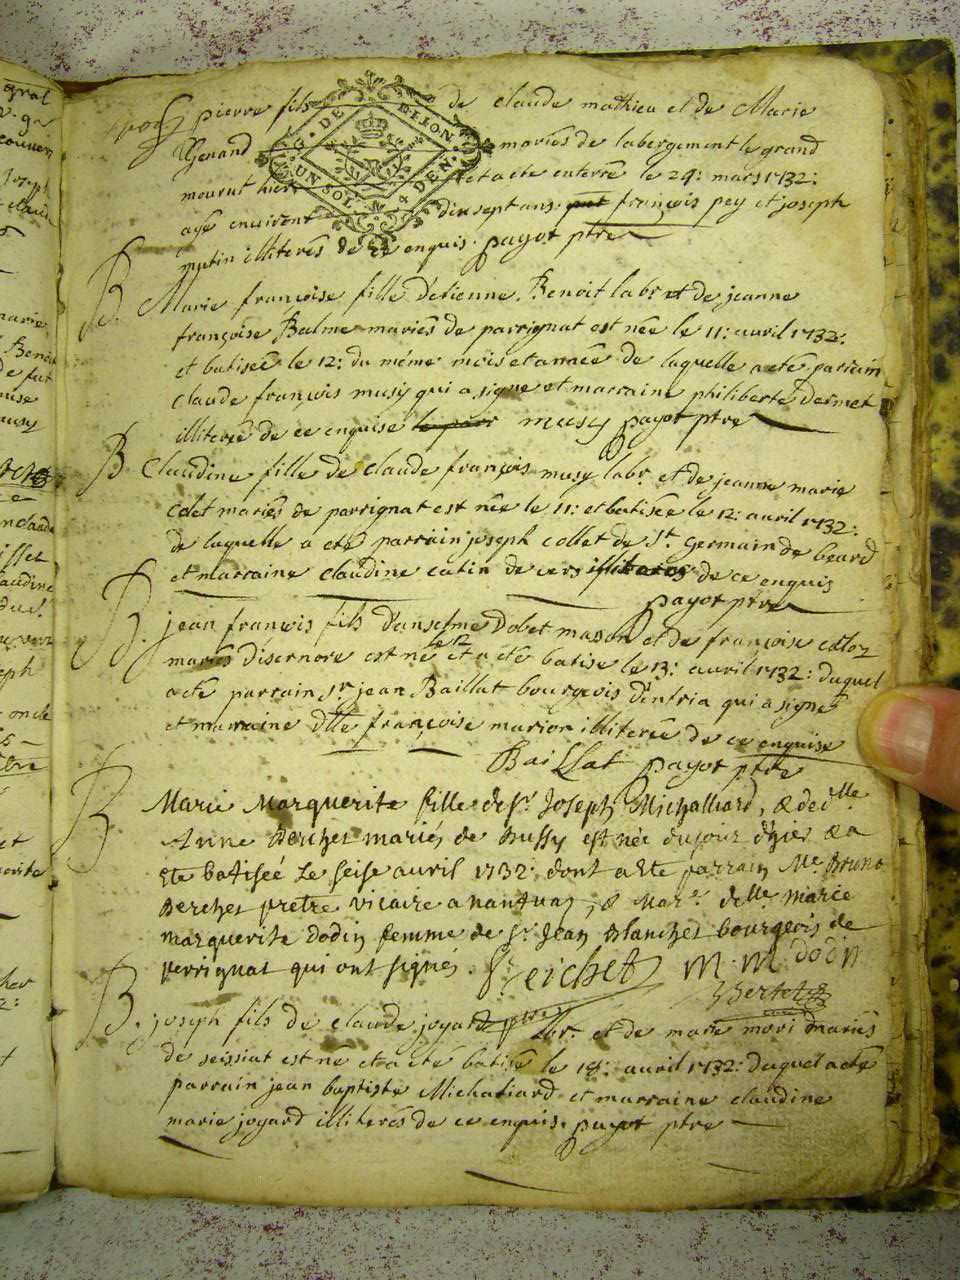 pierre fils de claude mathieu et de Marie
Genand mariés de labergement le grand
mourut hier et a ete enterré le 24: mars 1732:
agé environt dix sept ans françois pey et joseph
mutin illiterés de ce enquis. payot ptre
G. DE DIJON
UN SOL 4 DEN.
B. Marie françoise fille d'etienne Benoit labr. et de jeanne
françoise Balme mariés de parrignat est née le 11: avril 1732:
et batisée le 12: du méme mois et année de laquelle a eté parrain
claude françois musy qui a signé et marraine philiberte dermet
illiterée de ce enquise musy payot ptre
B Claudine fille de claude françois musy labr. et de jeanne marie
colet mariés de parrignat est née le 11: et batisée le 12: avril 1732:
de laquelle a eté parrain joseph collet de St. germain de beard
et marraine claudine catin de illiterés de ce enquis
payot ptre
B. jean françois fils d'anselme dobet masson et de françoise
mariés d'isernore est né le 12 et a eté batisé le 13: avril 1732: duquel
a eté parrain sr. jean Baillat bourgeois d'intria qui a signé
et marraine dlle françoise marion illiterée de ce enquise
Baillat payot ptre
B Marie Marguerite fille de sr. Joseph Michalliard, & de dlle
Anne Berchet mariés de Bussy est née du jour d'hier & a
ete batisée Le seise avril 1732 dont a ete parrain Mre Bruno
Berchet pretre vicaire a nantuaz, & mar.e delle marie
marguerite dodin femme de sr. Jean Blanchet bourgeois de
perrignat qui ont signés. m. m dodin
Bertet
B. joseph fils de claude joyard labr. et de marie mariés
de seissiat est né et a eté batisé le 18: avril 1732: duquel a eté
parrain jean baptiste Michaliard et marraine claudine
marie joyard illiterés de ce enquis. payot ptre